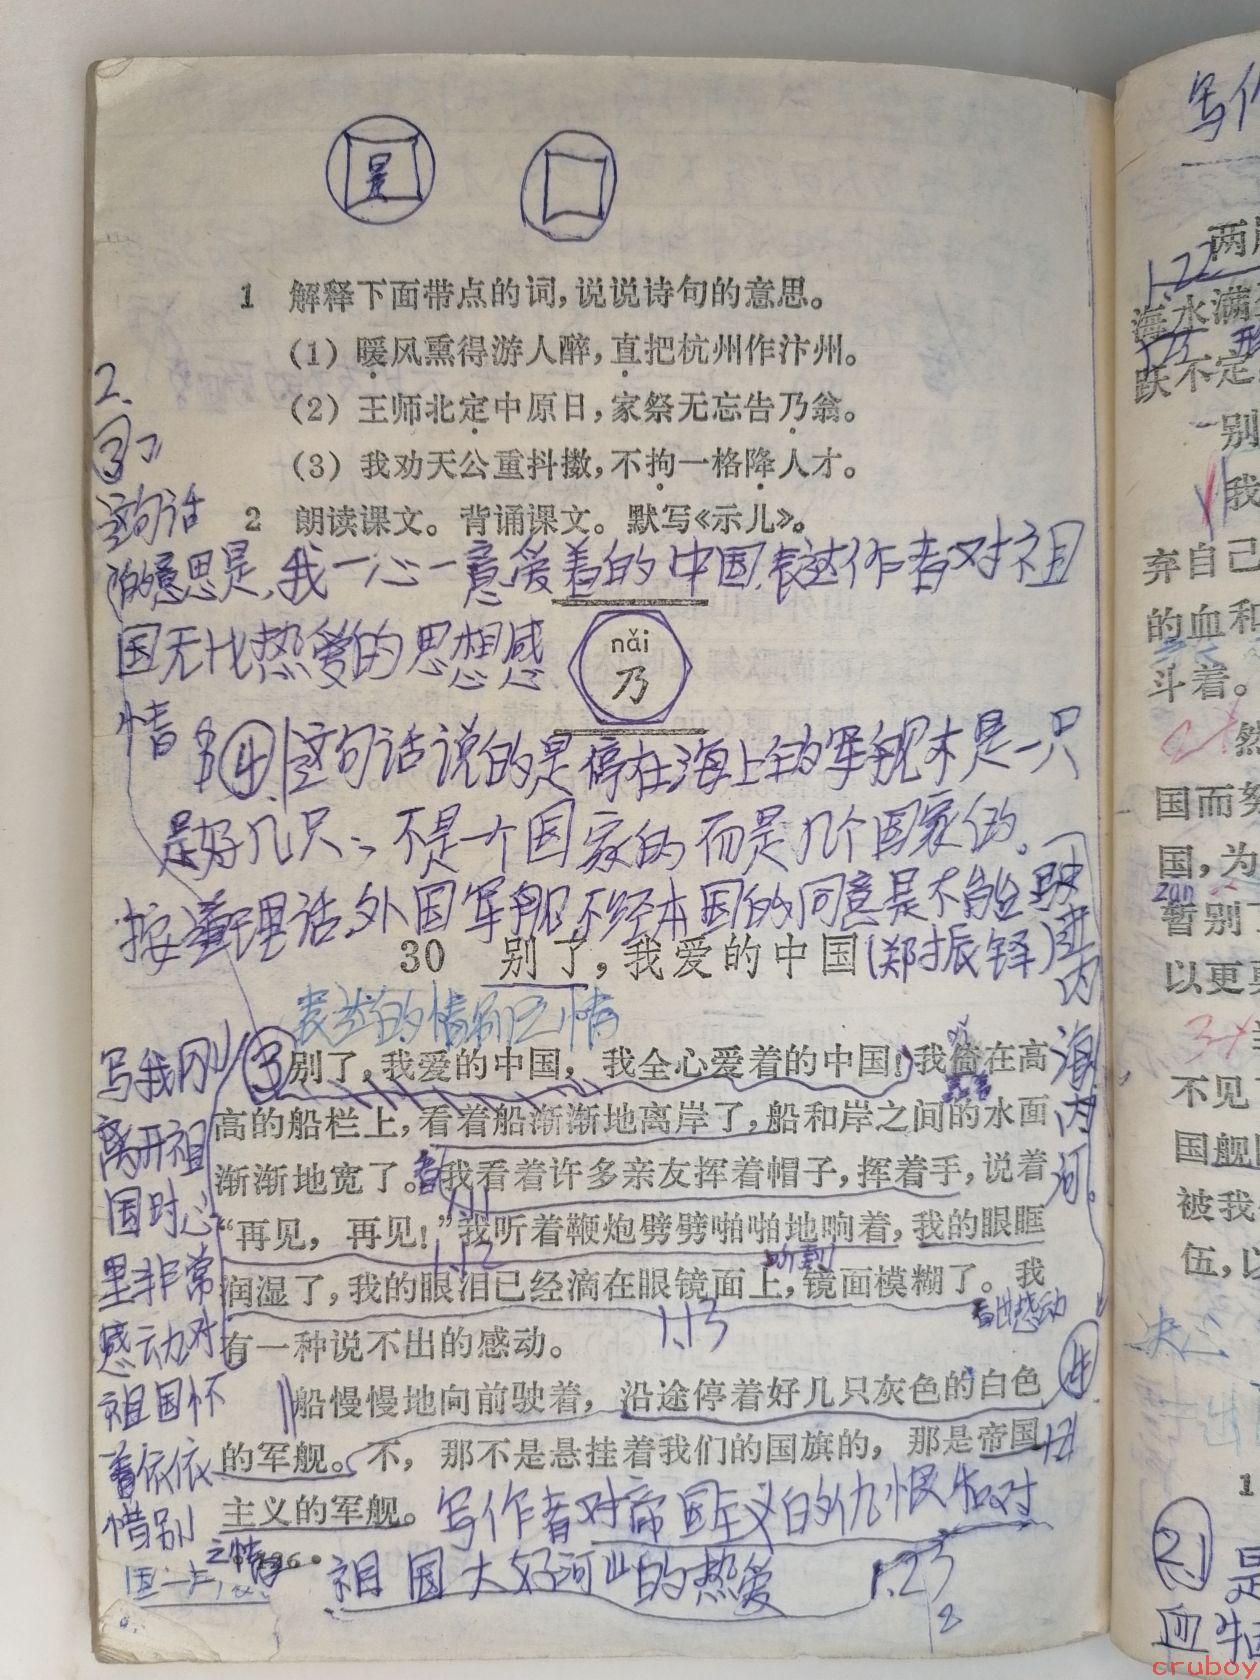 景
1 解释下面带点的词，说说诗句的意思。
(1) 暖风熏得游人醉，直把杭州作汴州。
(2) 王师北定中原日，家祭无忘告乃翁。
(3) 我劝天公重抖擞，不拘一格降人才。
2 朗读课文。背诵课文。默写《示儿》。
2.
③
这句话
的意思是，我一心一意爱着的中国，表达作者对祖
国无比热爱的思想感
情
nǎi
乃
④ 这句话说的是停在海上的军舰不是一只
是好几只，不是一个国家的而是几个国家的。
按道理话，外国军舰不经本国的同意是不能
进内
海内
河。
30 别了，我爱的中国 (郑振铎)
③ 别了，我爱的中国，我全心爱着的中国！我倚在高
高的船栏上，看着船渐渐地离岸了，船和岸之间的水面
渐渐地宽了。我看着许多亲友挥着帽子，挥着手，说着
“再见，再见！”我听着鞭炮劈劈啪啪地响着，我的眼眶
润湿了，我的眼泪已经滴在眼镜面上，镜面模糊了。我
有一种说不出的感动。
船慢慢地向前驶着，沿途停着好几只灰色的白色
的军舰。不，那不是悬挂着我们的国旗的，那是帝国
主义的军舰。
写作者对帝国主义的仇恨和对
祖国大好河山的热爱
写我刚
离开祖
国时心
里非常
感动对
祖国怀
着依依
惜别
之情
1.11
1.12
听到
1.13
④
1.23
2
写作
两
1.22
海水满
跃不定
别
我
弃自己
的血和
斗着。
然
国而努
国，为
zàn
暂别了
以更
不见
国舰
被我
伍，以
决心
1
2.1
是
血
cruboy